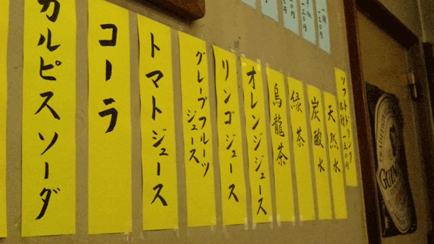 ソフトドリンク
天然水
炭酸水
緑茶
烏龍茶
オレンジジュース
リンゴジュース
グレープフルーツ
ジュース
トマトジュース
コーラ
カルピスソーダ
GUINNESS